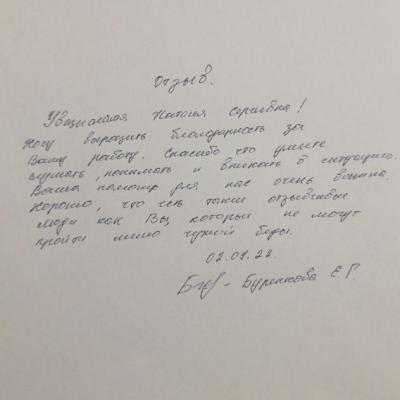 Отзыв.
Уважаемая Наталья Сергеевна!
Хочу выразить благодарность за
Вашу работу. Спасибо что умеете
слушать, понимать и вникать в ситуацию.
Ваша помощь для нас очень важна.
Хорошо, что есть такие отзывчивые
люди как Вы которые не могут
пройти мимо чужой беды.
02.09.22.
- Буренкова Е.Г.